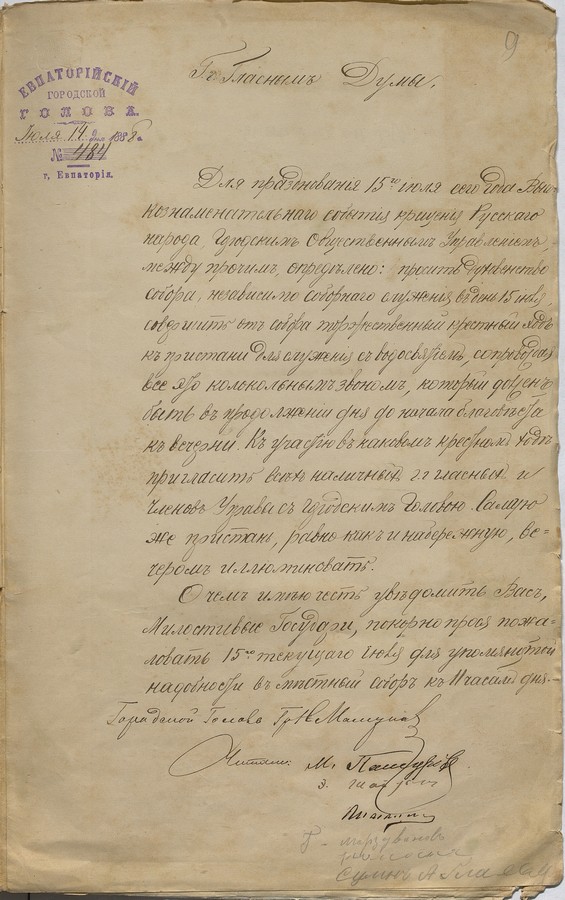 9
Гг. Гласнымъ Думы.
ЕВПАТОРІЙСКІЙ
ГОРОДСКОЙ
ГОЛОВА.
Іюля 14 дня 1888 г.
№ 484
г. Евпаторія.
Для празднованія 15го іюля сего года Высо-
кознаменательнаго событія крещенія Русскаго
народа, Городскимъ Общественнымъ Управленіемъ,
между прочимъ, опредѣлено: просить духовенство
собора, независимо соборнаго служенія въ день 15 іюля,
совершить отъ собора торжественный крестный ходъ
къ пристани для служенія съ водосвятіемъ, сопровождая
все это колокольнымъ звономъ, который долженъ
быть въ продолженіи дня до начала благовѣста
къ вечерни. Къ участію въ каковомъ крестномъ ходѣ
пригласить всѣхъ наличныхъ г.г. гласныхъ и
членовъ Управы съ Городскимъ Головою. Самую
же пристань, равно какъ и набережную, ве-
черомъ иллюминовать.
О чемъ имѣю честь увѣдомить Васъ,
Милостивые Государи, покорно прося пожа-
ловать 15го текущаго іюля для упомянутой
надобности въ мѣстный соборъ къ 11 часамъ дня.
Городской Голова Гр. Н. Мамуна
Читали: М.
Э.